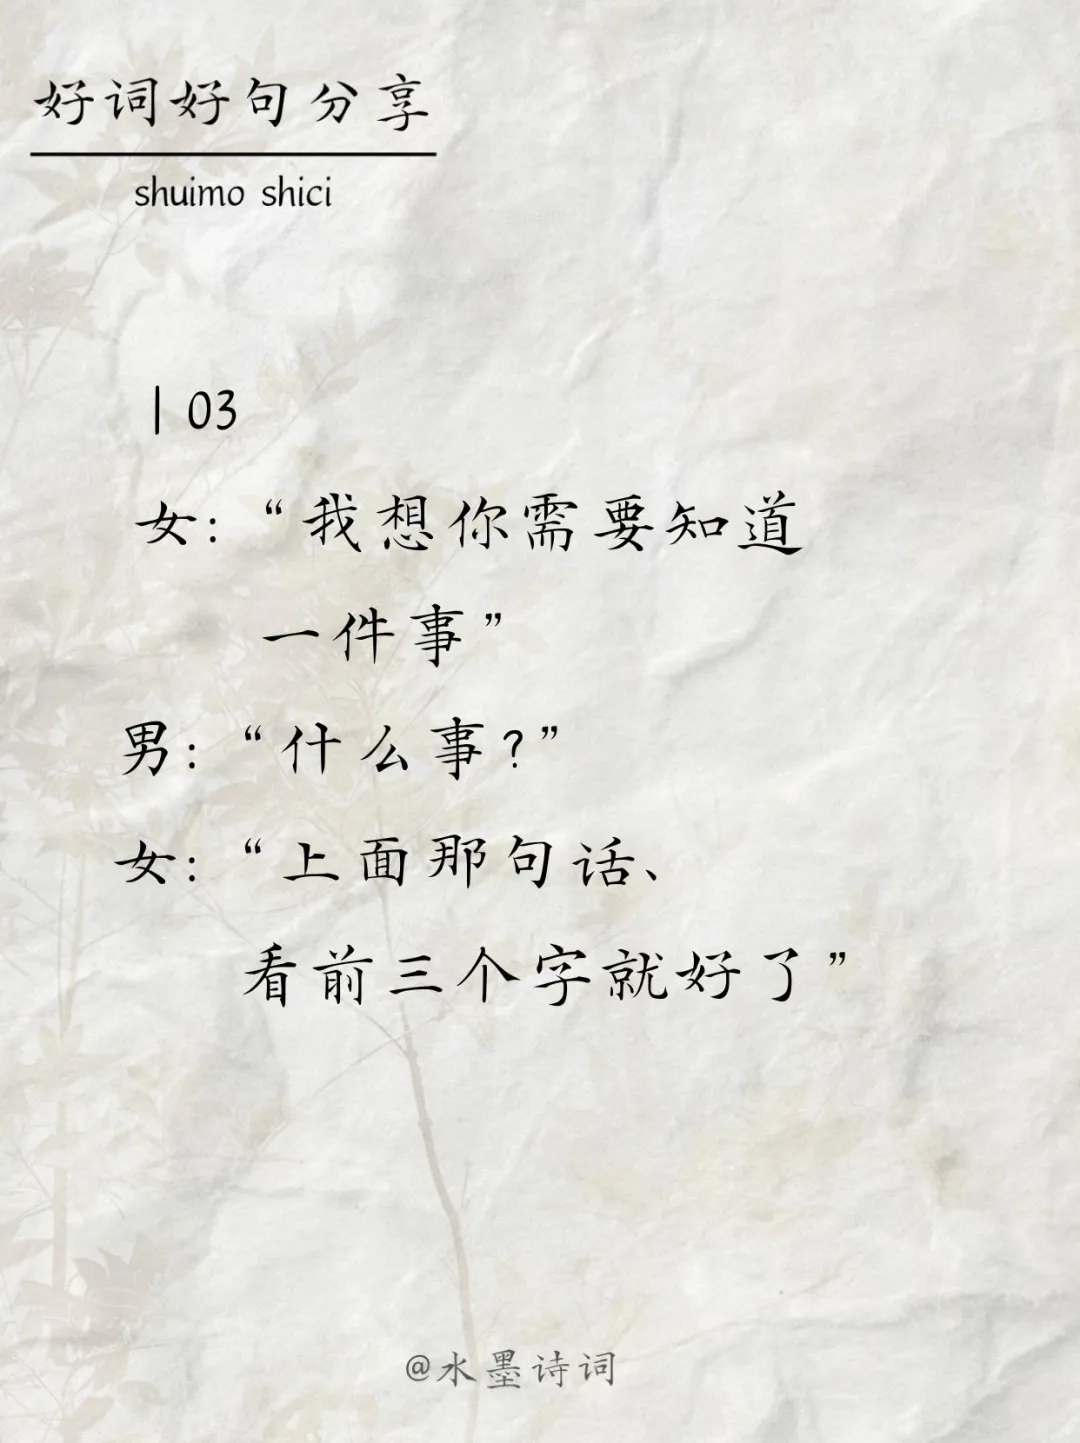 好词好句分享
shuimo shici
| 03
女:“我想你需要知道
一件事”
男:“什么事?”
女:“上面那句话、
看前三个字就好了”
@水墨诗词